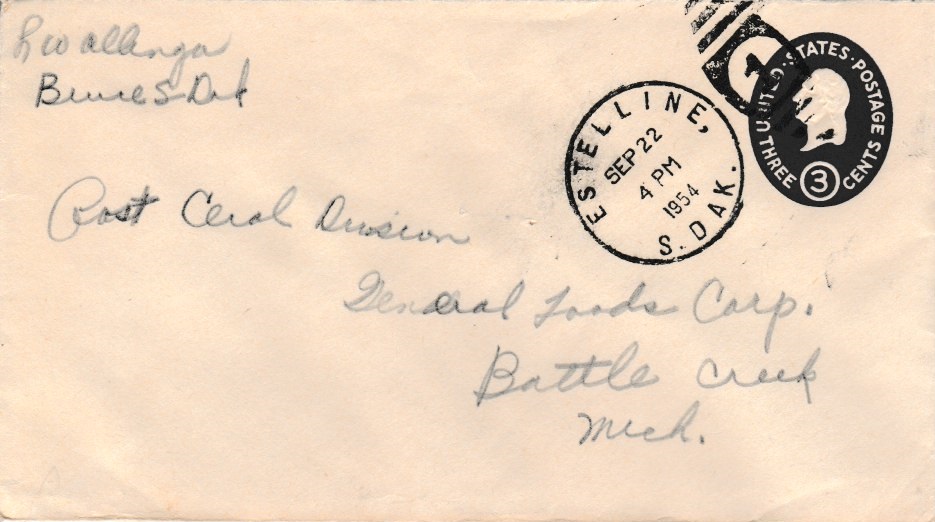 L Wallenga
Bruce S. Dak
ESTELLINE,
SEP 22
4 PM
1954
S. DAK.
1
UNITED·STATES·POSTAGE
THREE 3 CENTS
Post Ceral Division
General Foods Corp.
Battle Creek
Mich.